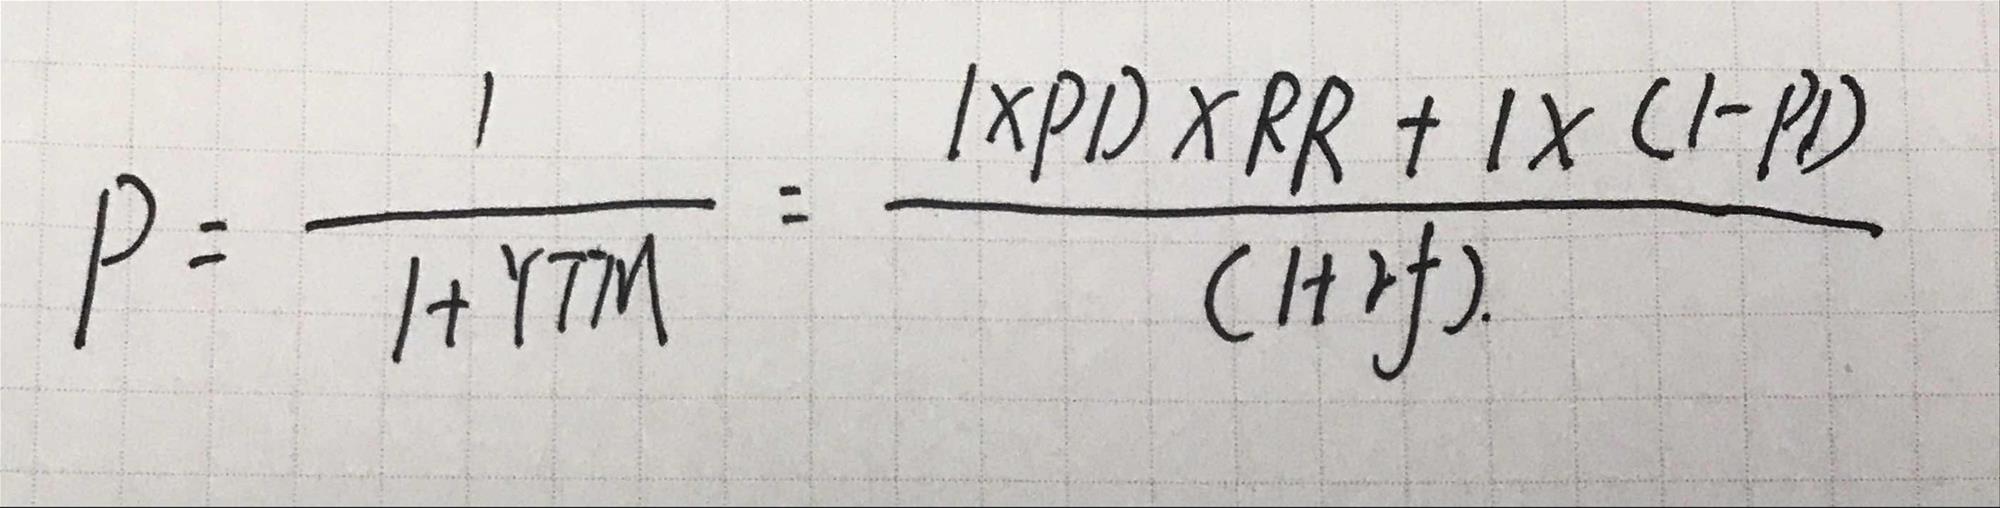 P = 1 / (1 + YTM) = (1 × PD × RR + 1 × (1 - PD)) / (1 + rf).